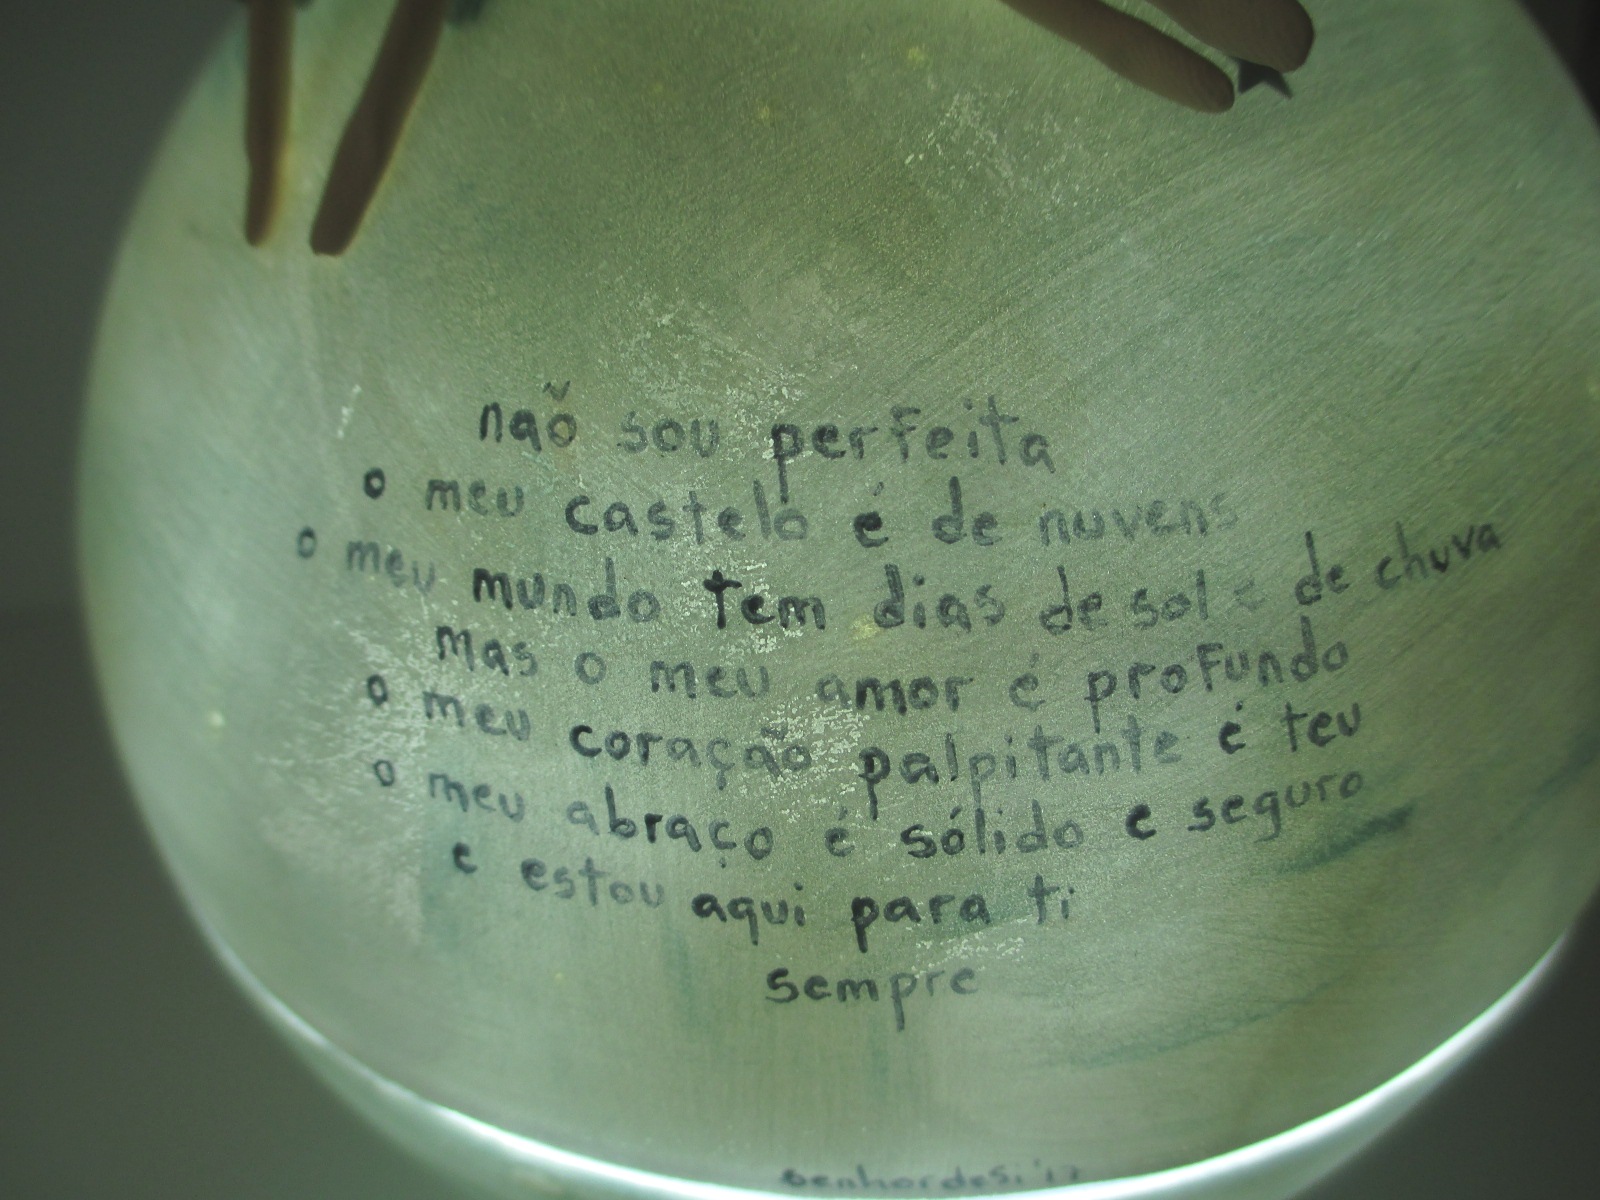 não sou perfeita
o meu castelo é de nuvens
o meu mundo tem dias de sol e de chuva
mas o meu amor é profundo
o meu coração palpitante é teu
o meu abraço é sólido e seguro
e estou aqui para ti
sempre
senhordesi '17